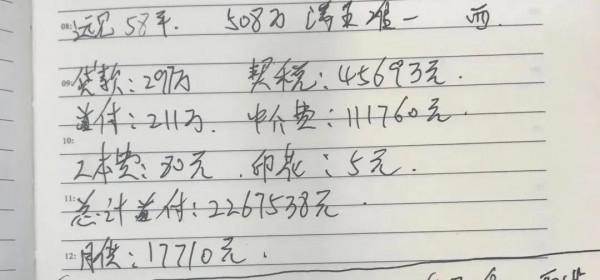 08:
远见58平. 508万 满五唯一 西.
09:
贷款:297万 契税:45693元.
首付:211万. 中介费:111760元.
10:
工本费:80元. 印花:5元.
11:
总计首付:2267538元.
12:
月供:17710元.